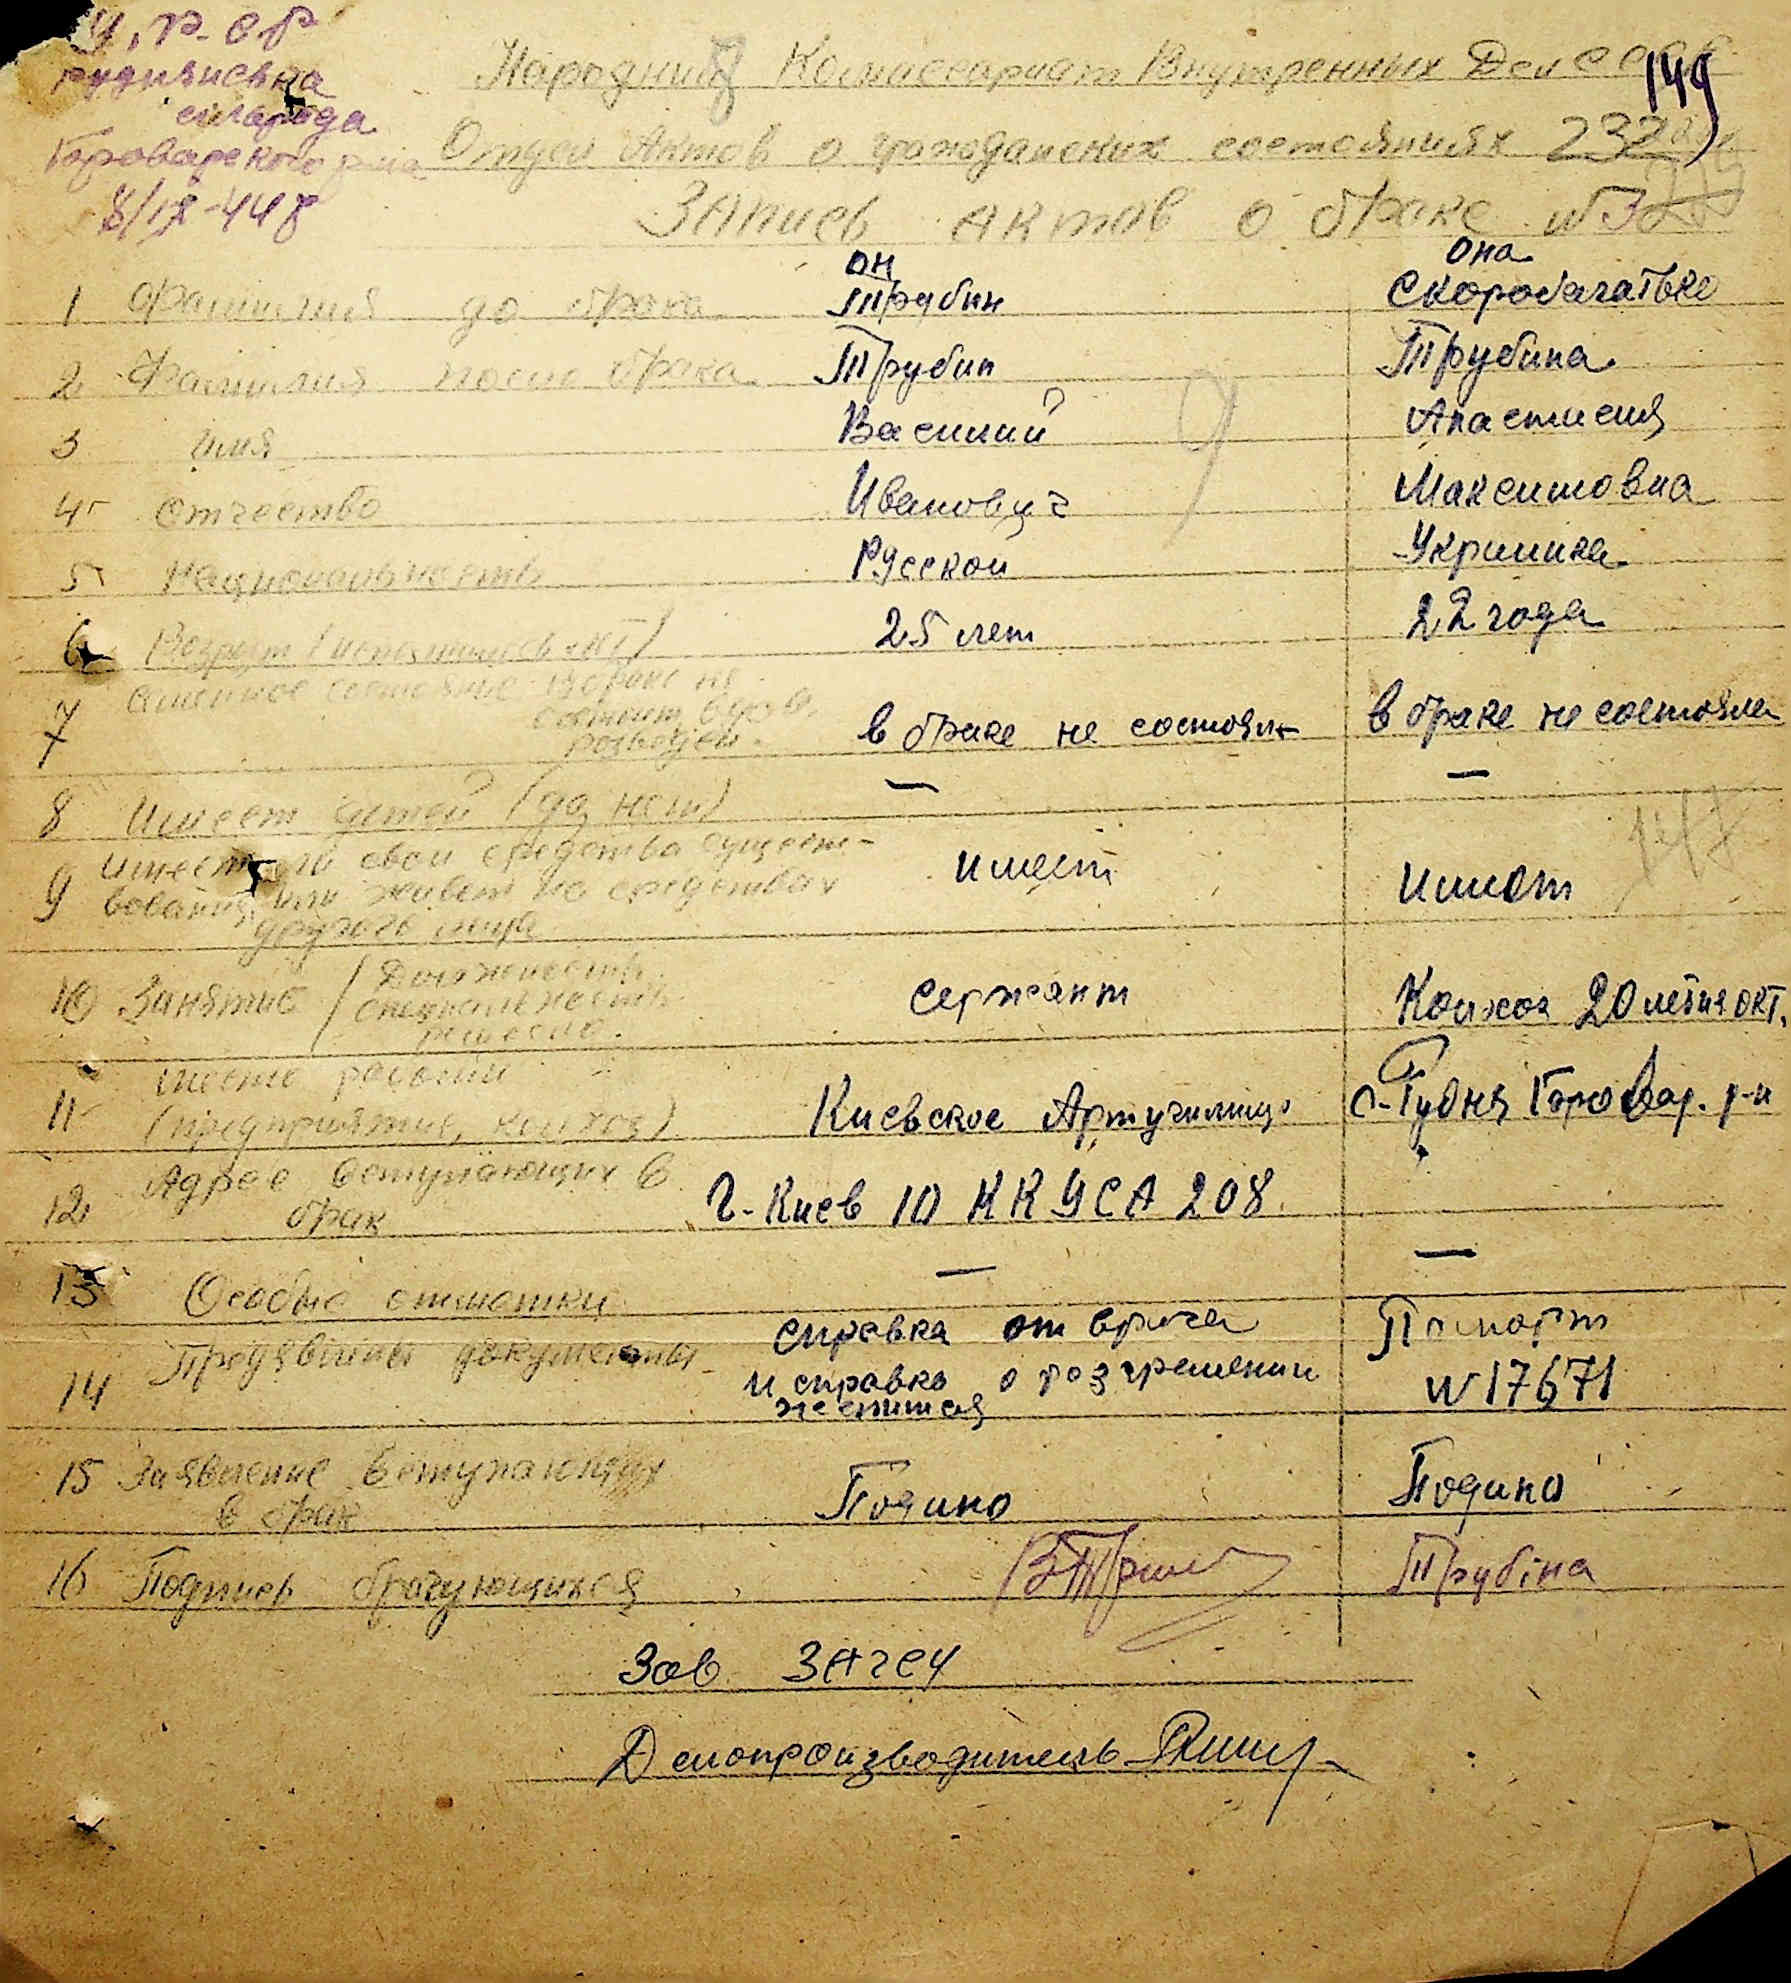 У.Р.С.Р
Руднянська
сільрада
Броварского р-на
8/IX-44 г
149
Народний Комиссариат Внутренных Дел СССР
Отдел Актов о гражданских состояниях 232
Запись актов о браке №
он она
1 Фамилия до брака Трубин Скоробагатько
2 Фамилия после брака Трубин Трубина
3 имя Василий Анастасия
4 Отчество Иванович Максимовна
5 Национальность Русской Украинка
6 Возраст (исполнилось лет) 25 лет 22 года
7 Семейное состояние в браке не
состоит, вдов,
розведен. в браке не состоял в браке не состояла
8 Имеет детей (да, нет) — —
9 Имеет ли свои средства сущест-
вования, или живет на средствах
другого лица имеет имеет
10 Занятие (Должность
специальность
ремесло. сержант Колхоз 20 летия окт.
11 место работы
(предприятие, колхоз) Киевское Артучилище с-Рудня Бровар. р-н
12 Адрес вступающих в
брак г-Киев 10 ККУСА 208
13 Особые отметки — —
14 Предявлены документы справка от врача
и справка о розгрешении
женится
Паспорт
№ 17671
15 Заявление вступающих
в брак Подано Подано
16 Подписи брачующихся Трубіна
Зав. ЗАГСУ
Делопроизводитель